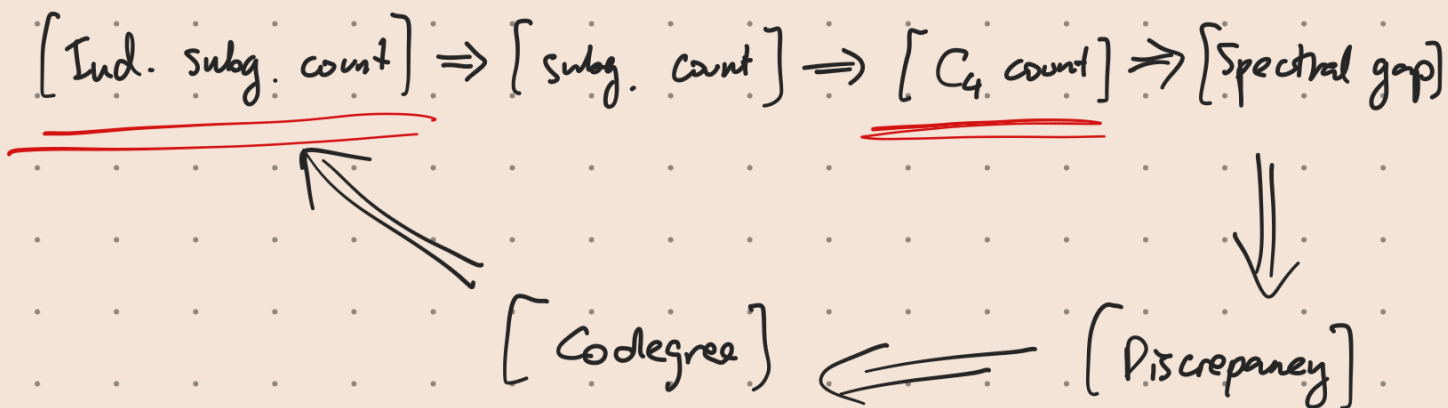 [Ind. subg. count] ⇒ [subg. count] ⇒ [C₄ count] ⇒ [Spectral gap]
[Codegree] ⇐ [Discrepancy]